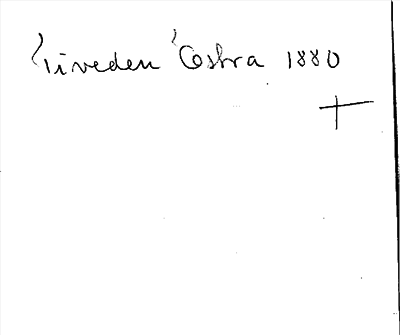 Tiveden Östra 1880